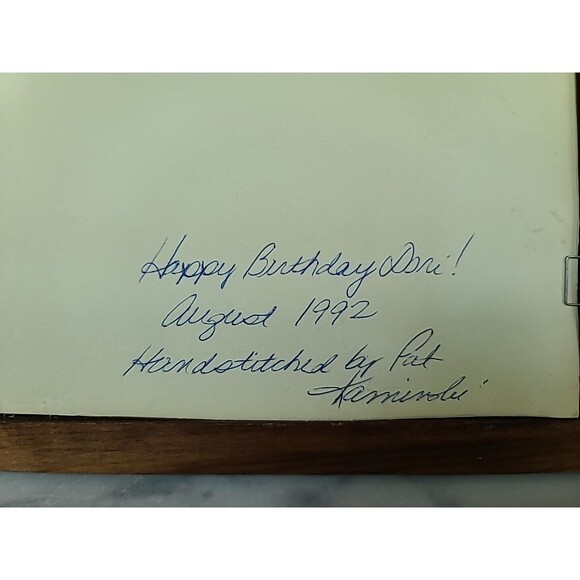 Happy Birthday Dori!
August 1992
Handstitched by Pat
Kaminski